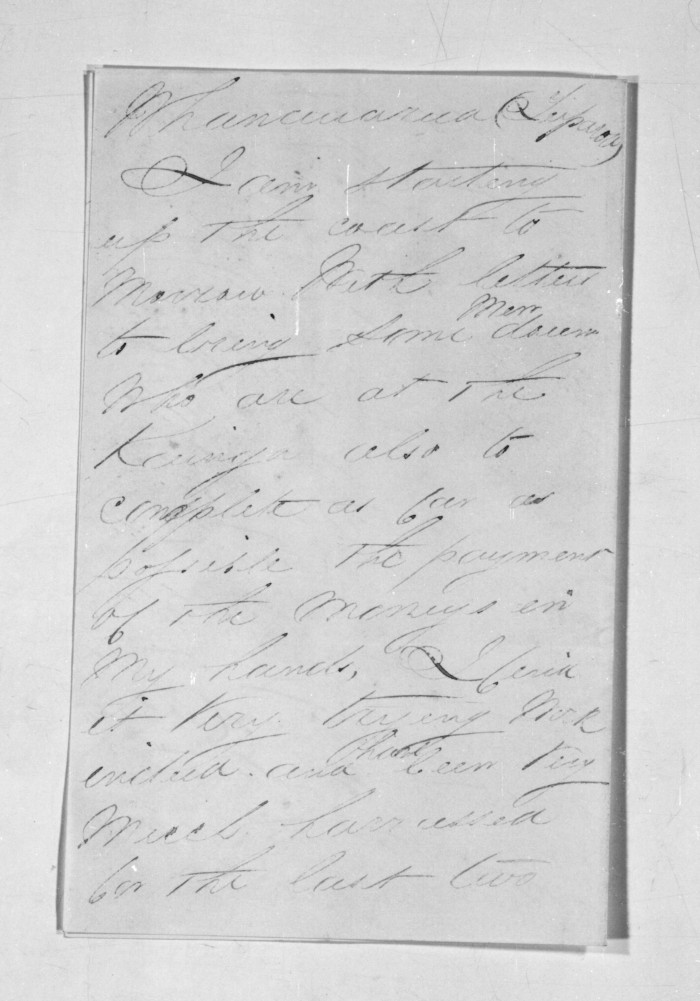 Whanawarua (Typsey)
I am starting
up the coast to
Morrow With letters
to bring some Men down
Who are at the
Kainga also to
complete as far as
possible the payment
of the Moneys in
My hands, I find
it very trying Work
indeed and have been very
Much harrassed
for the last two